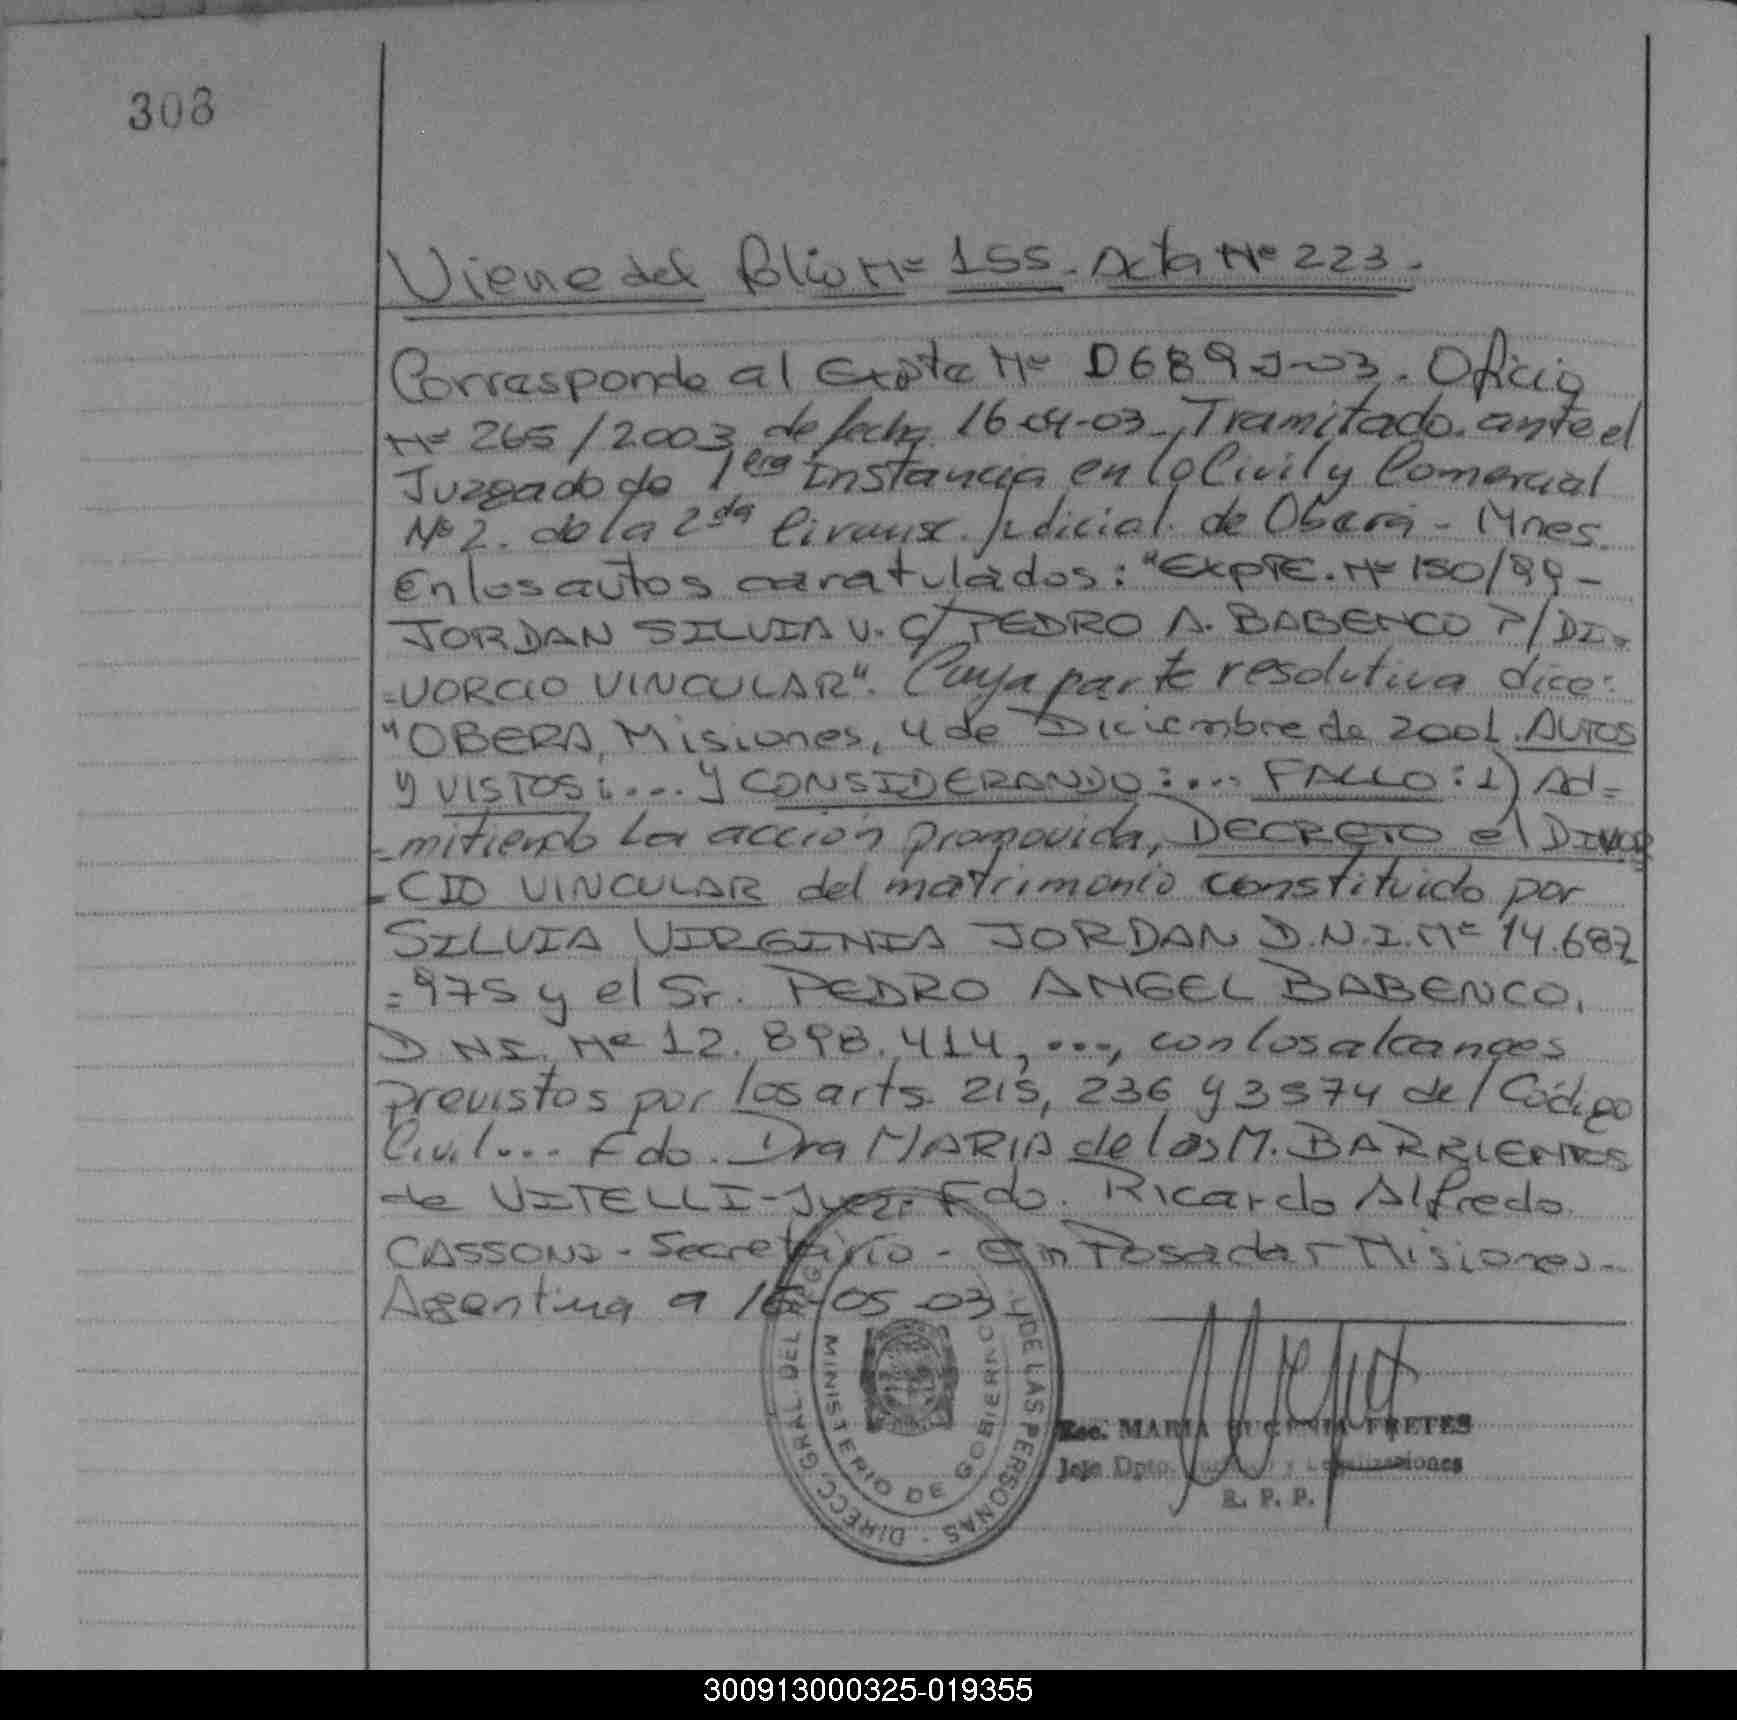 308
Viene del folio Nº 155. Acta Nº 223.
Corresponde al Expte Nº D689-J-03. Oficio
Nº 265/2003 de fecha 16-04-03. Tramitado ante el
Juzgado de 1era Instancia en lo Civil y Comercial
Nº 2. de la 2da Circunsc. Judicial de Oberá - Mnes.
En los autos caratulados: "EXPTE. Nº 150/99 -
JORDAN SILVIA V. C/ PEDRO A. BABENCO P/ DI=
=VORCIO VINCULAR". Cuya parte resolutiva dice:
"OBERA, Misiones, 4 de Diciembre de 2001. AUTOS
y VISTOS:... y CONSIDERANDO:... FALLO: 1) Ad=
=mitiendo la acción promovida, DECRETO el DIVOR
=CIO VINCULAR del matrimonio constituido por
SILVIA VIRGINIA JORDAN D.N.I. Nº 14.687
=975 y el Sr. PEDRO ANGEL BABENCO,
D.N.I. Nº 12.898.414, ..., con los alcances
previstos por los arts. 215, 236 y 3574 del Código
Civil... Fdo. Dra MARIA de las M. BARRIENTOS
de VITELLI - Juez. Fdo. Ricardo Alfredo
CASSONI - Secretario - En Posadas Misiones
Argentina a 16-05-03
DIRECC. GRAL. DEL REG. Y DE LAS PERSONAS
MINISTERIO DE GOBIERNO
Esc. MARIA EUGENIA FRETES
Jefe Dpto. y Legalizaciones
R. P. P.
300913000325-019355